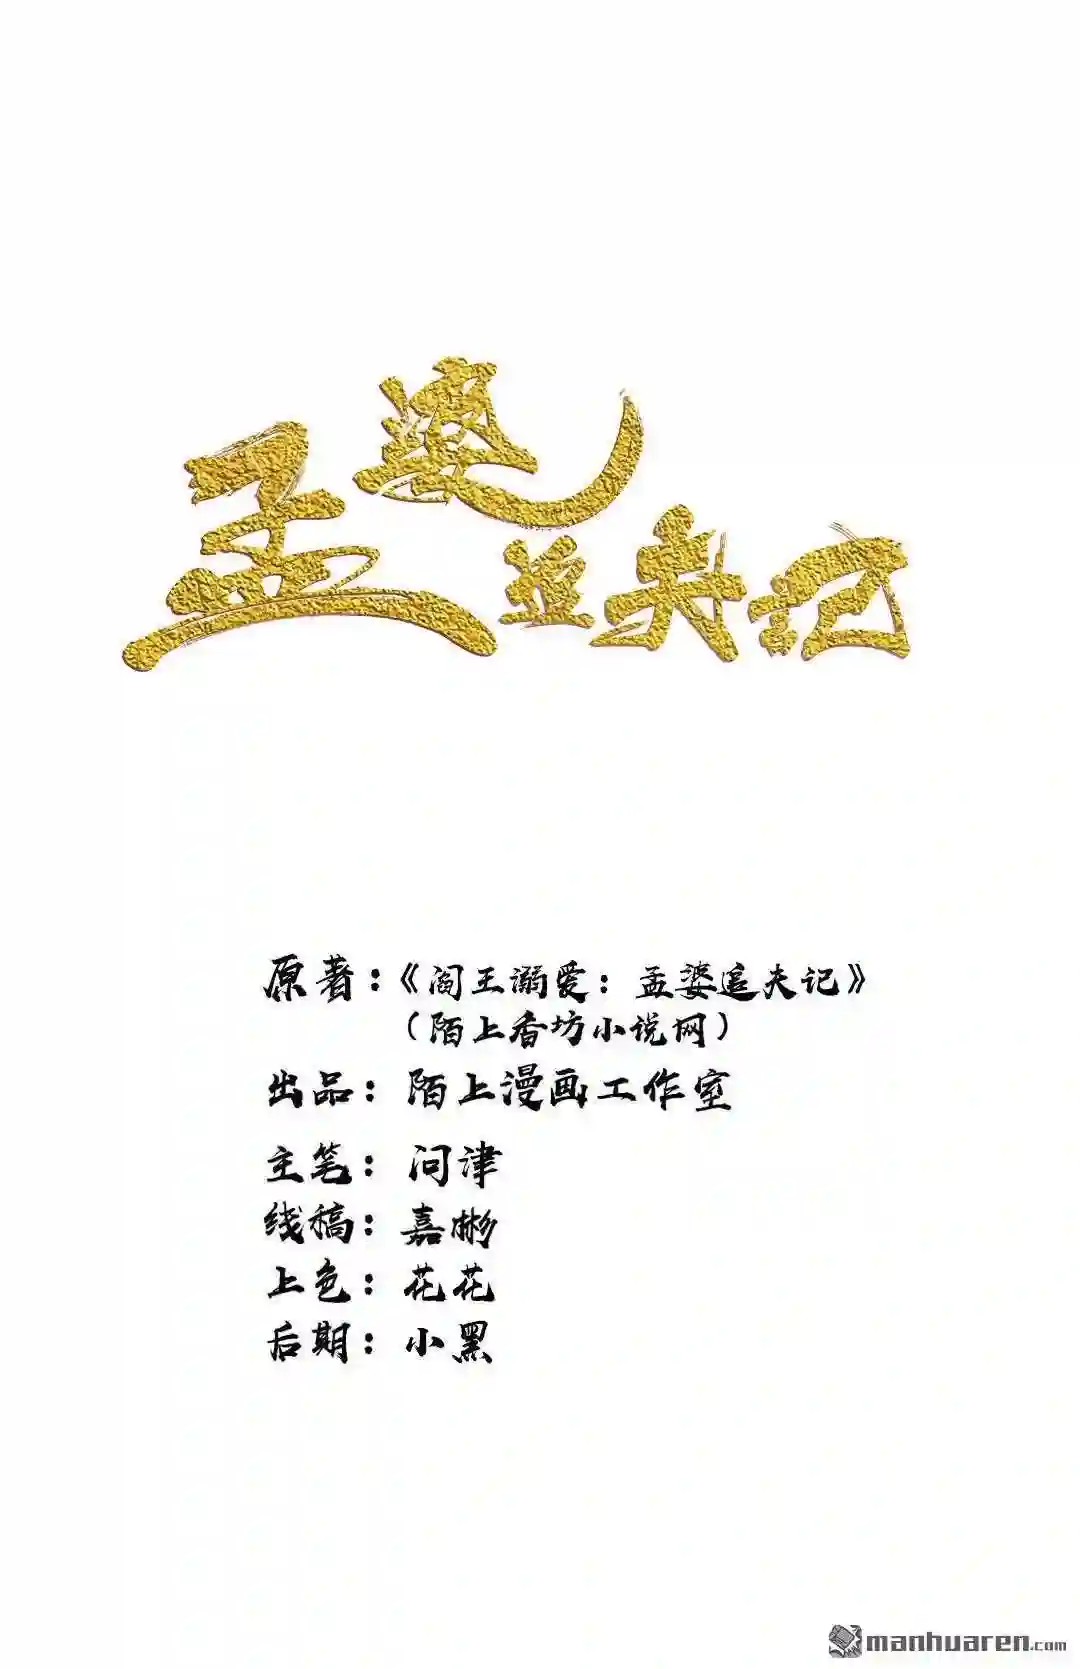 孟婆追夫记
原著：《阎王溺爱：孟婆追夫记》
（陌上香坊小说网）
出品：陌上漫画工作室
主笔：问津
线稿：嘉彬
上色：花花
后期：小黑
manhuaren.com